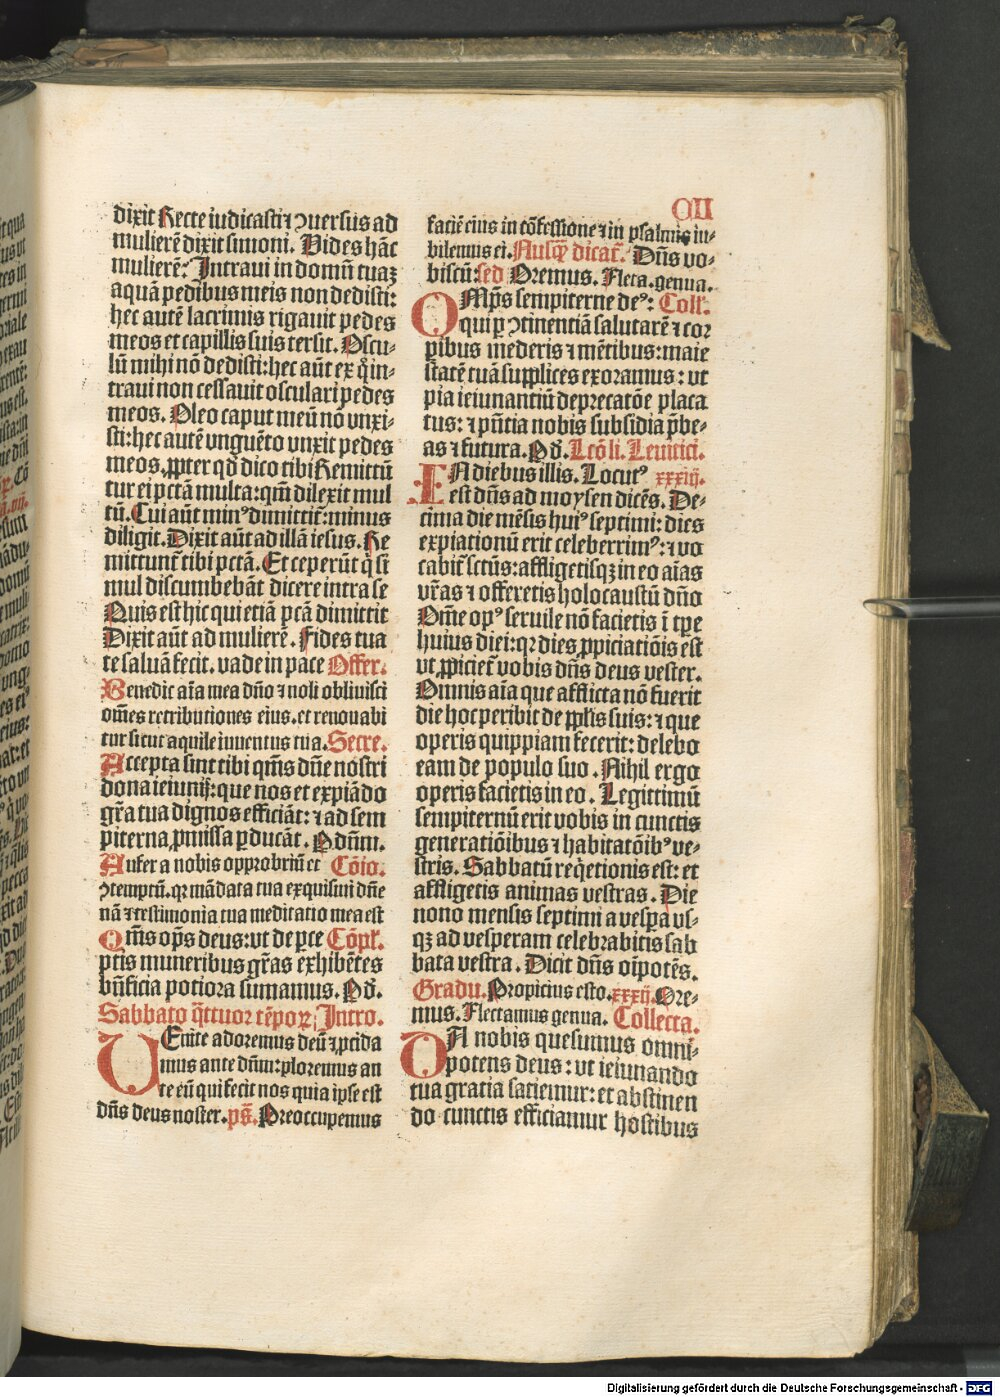 CVII
dixit Recte iudicasti ⁊ ꝯuersus ad
mulierē dixit simoni. Vides hāc
mulierē: Intraui in domū tuaꝫ
aquā pedibus meis non dedisti:
hec autē lacrimis rigauit pedes
meos et capillis suis tersit. Oscu-
lū mihi nō dedisti: hec aūt ex q̄ in-
traui non cessauit osculari pedes
meos. Oleo caput meū nō vnxi-
sti: hec autē vnguēto vnxit pedes
meos. ꝓpter qd̄ dico tibi Remittū
tur ei pctā multa: qm̄ dilexit mul
tū. Cui aūt minꝰ dimittit̄: minus
diligit. Dixit aūt ad illā iesus. Re
mittunt̄ tibi pctā. Et ceperūt q̄ si
mul discumbebāt dicere intra se
Quis est hic qui etiā pctā dimittit
Dixit aūt ad mulierē. Fides tua
te saluā fecit. vade in pace Offer.
Benedic aīa mea dn̄o ⁊ noli obliuisci
om̄es retributiones eius. et renouabi
tur sicut aquile iuuentus tua. Secre.
Accepta sint tibi qm̄s dn̄e nostri
dona ieiunij: que nos et expiādo
gr̄a tua dignos efficiāt: ⁊ ad sem
piterna ꝓmissa ꝑducāt. P dn̄m.
Aufer a nobis opprobriū et Cōio.
ꝯtemptū. qꝛ mādata tua exquisiui dn̄e
nā ⁊ testimonia tua meditatio mea est
Qm̄s op̄s deus: vt de ꝑce Cōpl̄.
ptis muneribus gr̄as exhibētes
bn̄ficia potiora sumamus. Pd̄.
Sabbato q̄ttuor tēpoꝝ Intro.
VEnite adoremus deū ⁊ ꝓcida
mus ante dn̄m: ploremus an
te eū qui fecit nos quia ipse est
dn̄s deus noster. ps̄. Preoccupemus
faciē eius in cōfessione ⁊ in psalmis iu-
bilemus ei. Nusqꝫ dicat̄. Dn̄s vo-
biscū: sed Oremus. Flcta. genua.
OMp̄s sempiterne deꝰ: Coll̄.
qui ꝑ ꝯtinentiā salutarē ⁊ cor
pibus mederis ⁊ mētibus: maie
statē tuā supplices exoramus: vt
pia ieiunantiū deprecatōe placa
tus: ⁊ pn̄tia nobis subsidia p̄be-
as ⁊ futura. Pd̄. Lcō li. Leuitici.
IN diebus illis. Locutꝰ xxxiij.
est dn̄s ad moysen dicēs. De-
cima die mēsis huiꝰ septimi: dies
expiationū erit celeberrimꝰ: ⁊ vo
cabit̄ sctūs: affligetisqꝫ in eo aīas
vr̄as ⁊ offeretis holocaustū dn̄o
Om̄e opꝰ seruile nō facietis ī tpe
huius diei: qꝛ dies ꝓpiciatiōis est
vt ꝓpiciet̄ vobis dn̄s deus vester.
Omnis aīa que afflicta nō fuerit
die hoc peribit de pplīs suis: ⁊ que
operis quippiam fecerit: delebo
eam de populo suo. Nihil ergo
operis facietis in eo. Legittimū
sempiternū erit vobis in cunctis
generatiōibus ⁊ habitatōibꝰ ve-
stris. Sabbatū reqͥetionis est: et
affligetis animas vestras. Die
nono mensis septimi a vespa vs-
qꝫ ad vesperam celebrabitis sab
bata vestra. Dicit dn̄s oīpotēs.
Gradu. Propicius esto. xxxij. Ore-
mus. Flectamus genua. Collecta.
DA nobis quesumus omni-
potens deus: vt ieiunando
tua gratia satiemur: et abstinen
do cunctis efficiamur hostibus
Digitalisierung gefördert durch die Deutsche Forschungsgemeinschaft - DFG